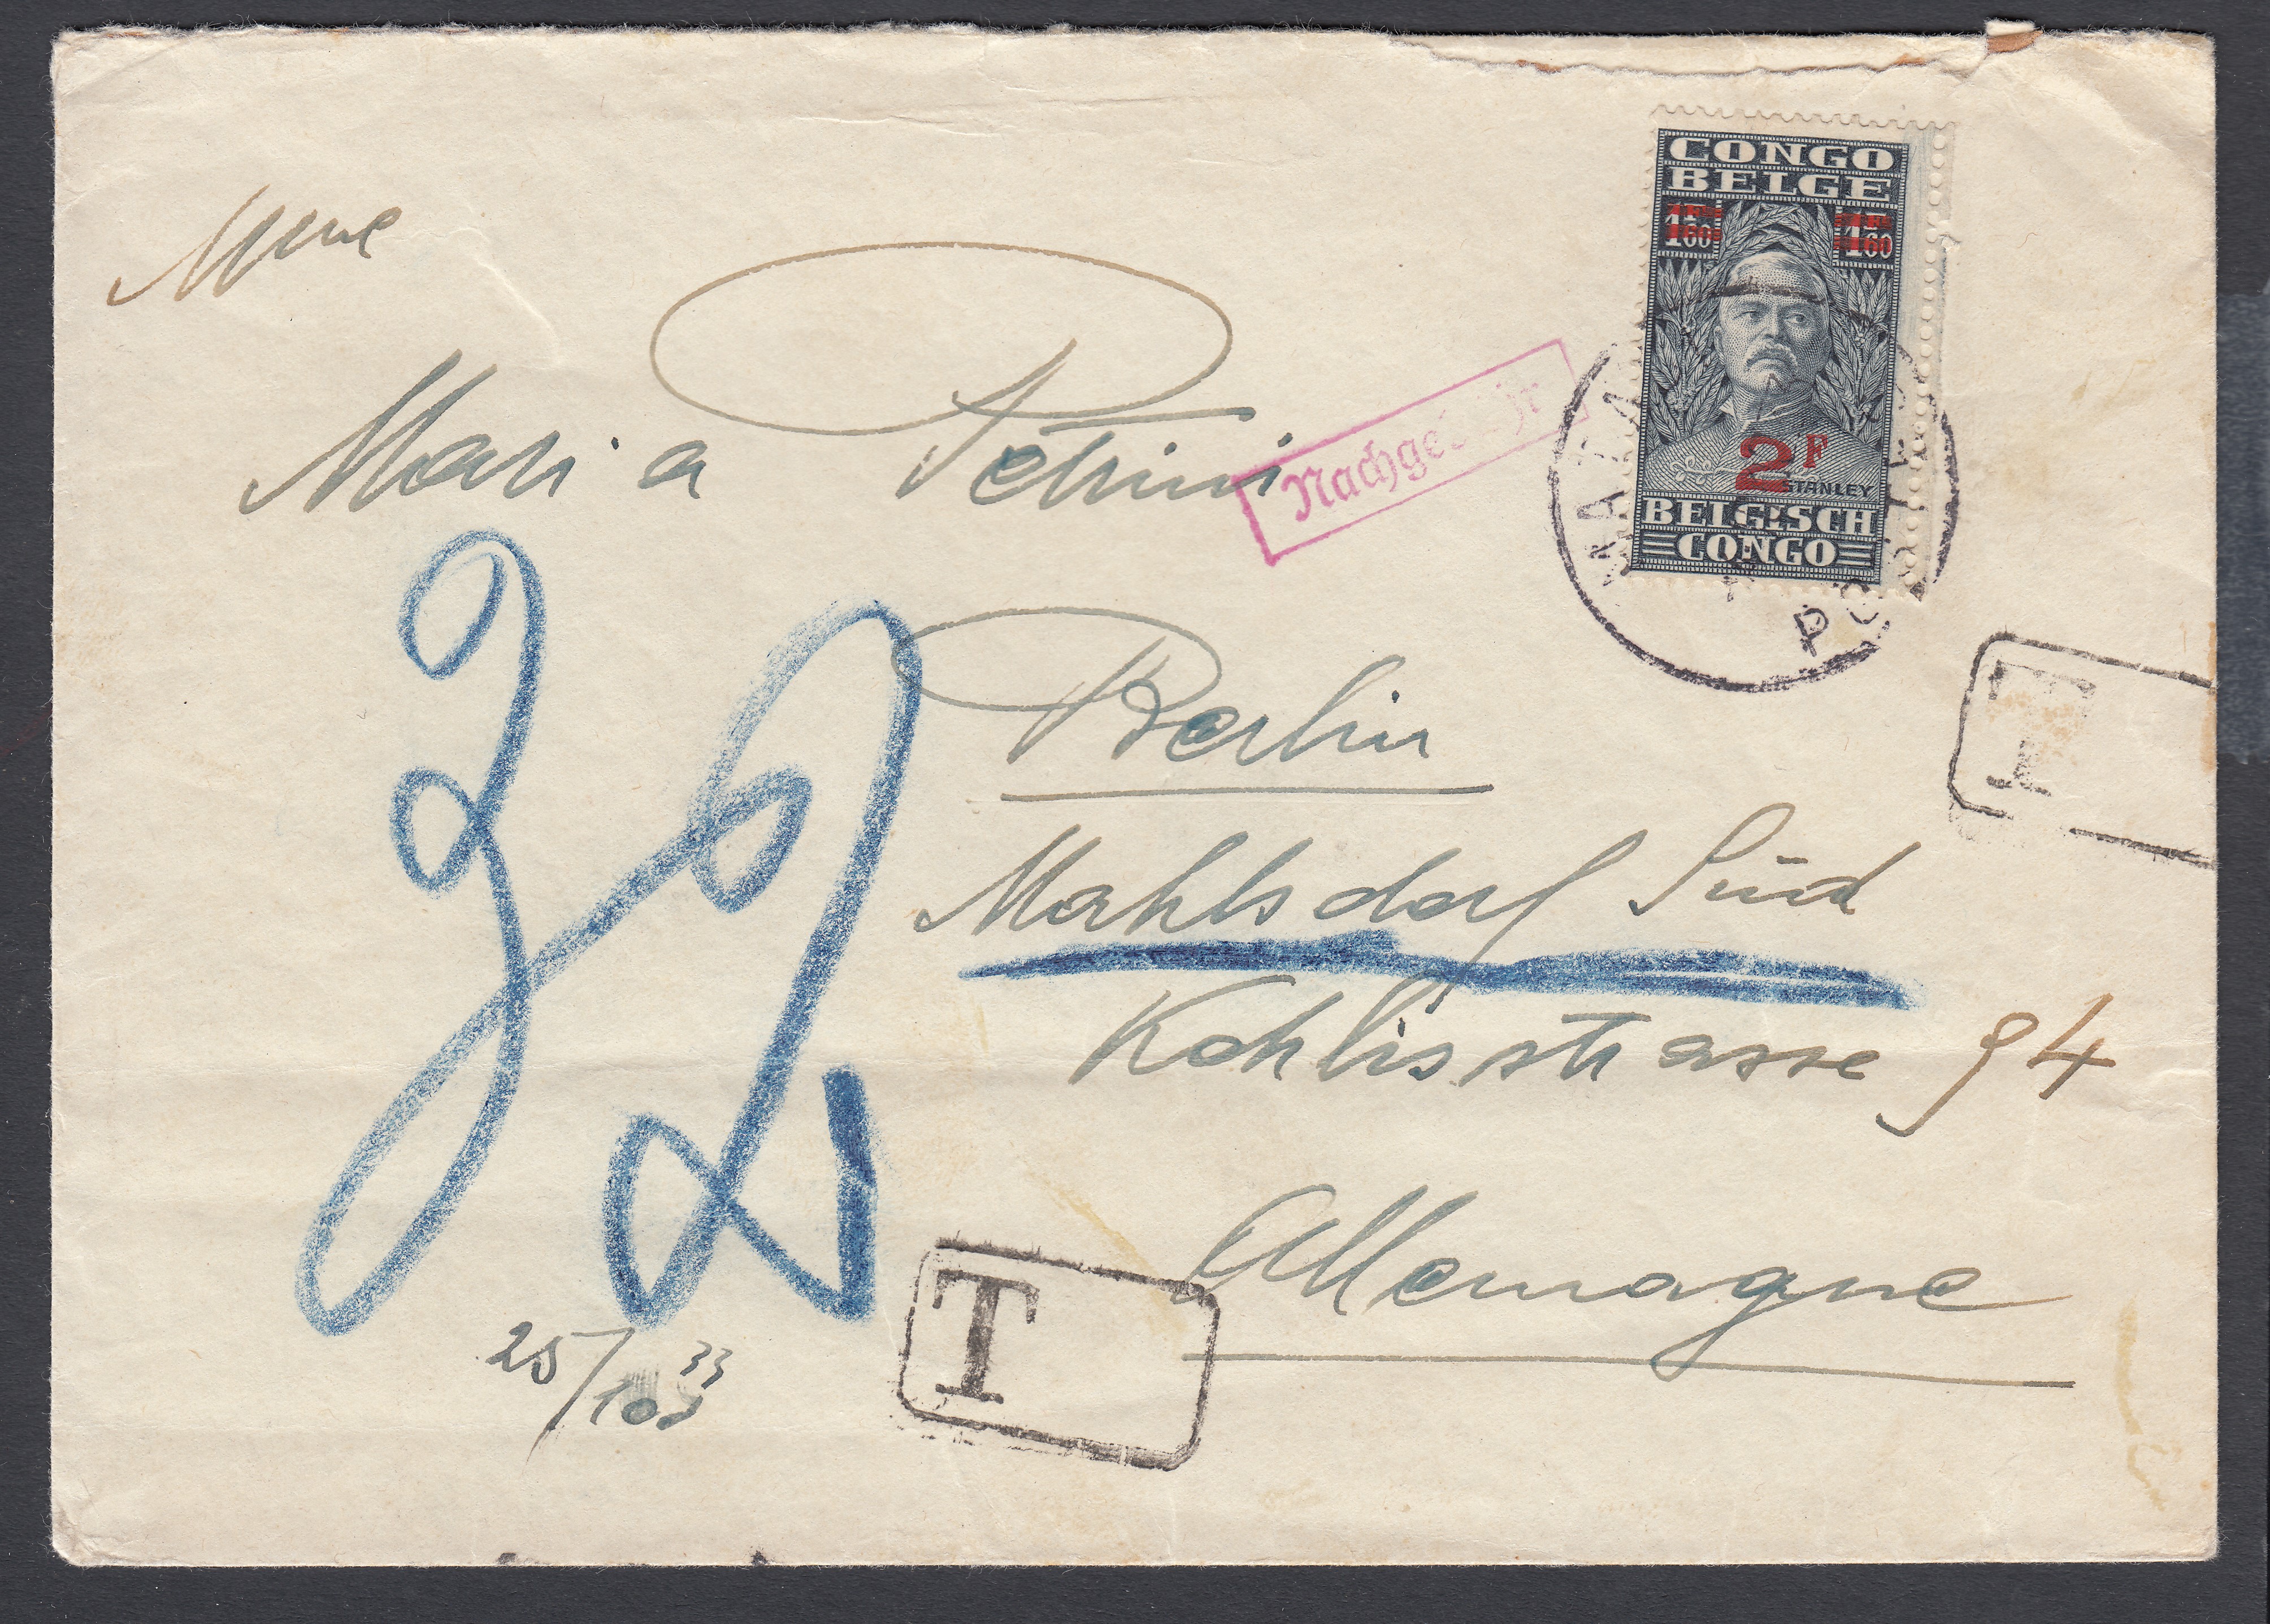 Mme
Maria Petrini
Nachgebühr
CONGO
BELGE
1.60 1.60
2F
STANLEY
BELGISCH
CONGO
MATADI
POSTES
T
Berlin
Mahlsdorf Süd
32
Kohlisstrasse 94
Allemagne
T
25/10 33